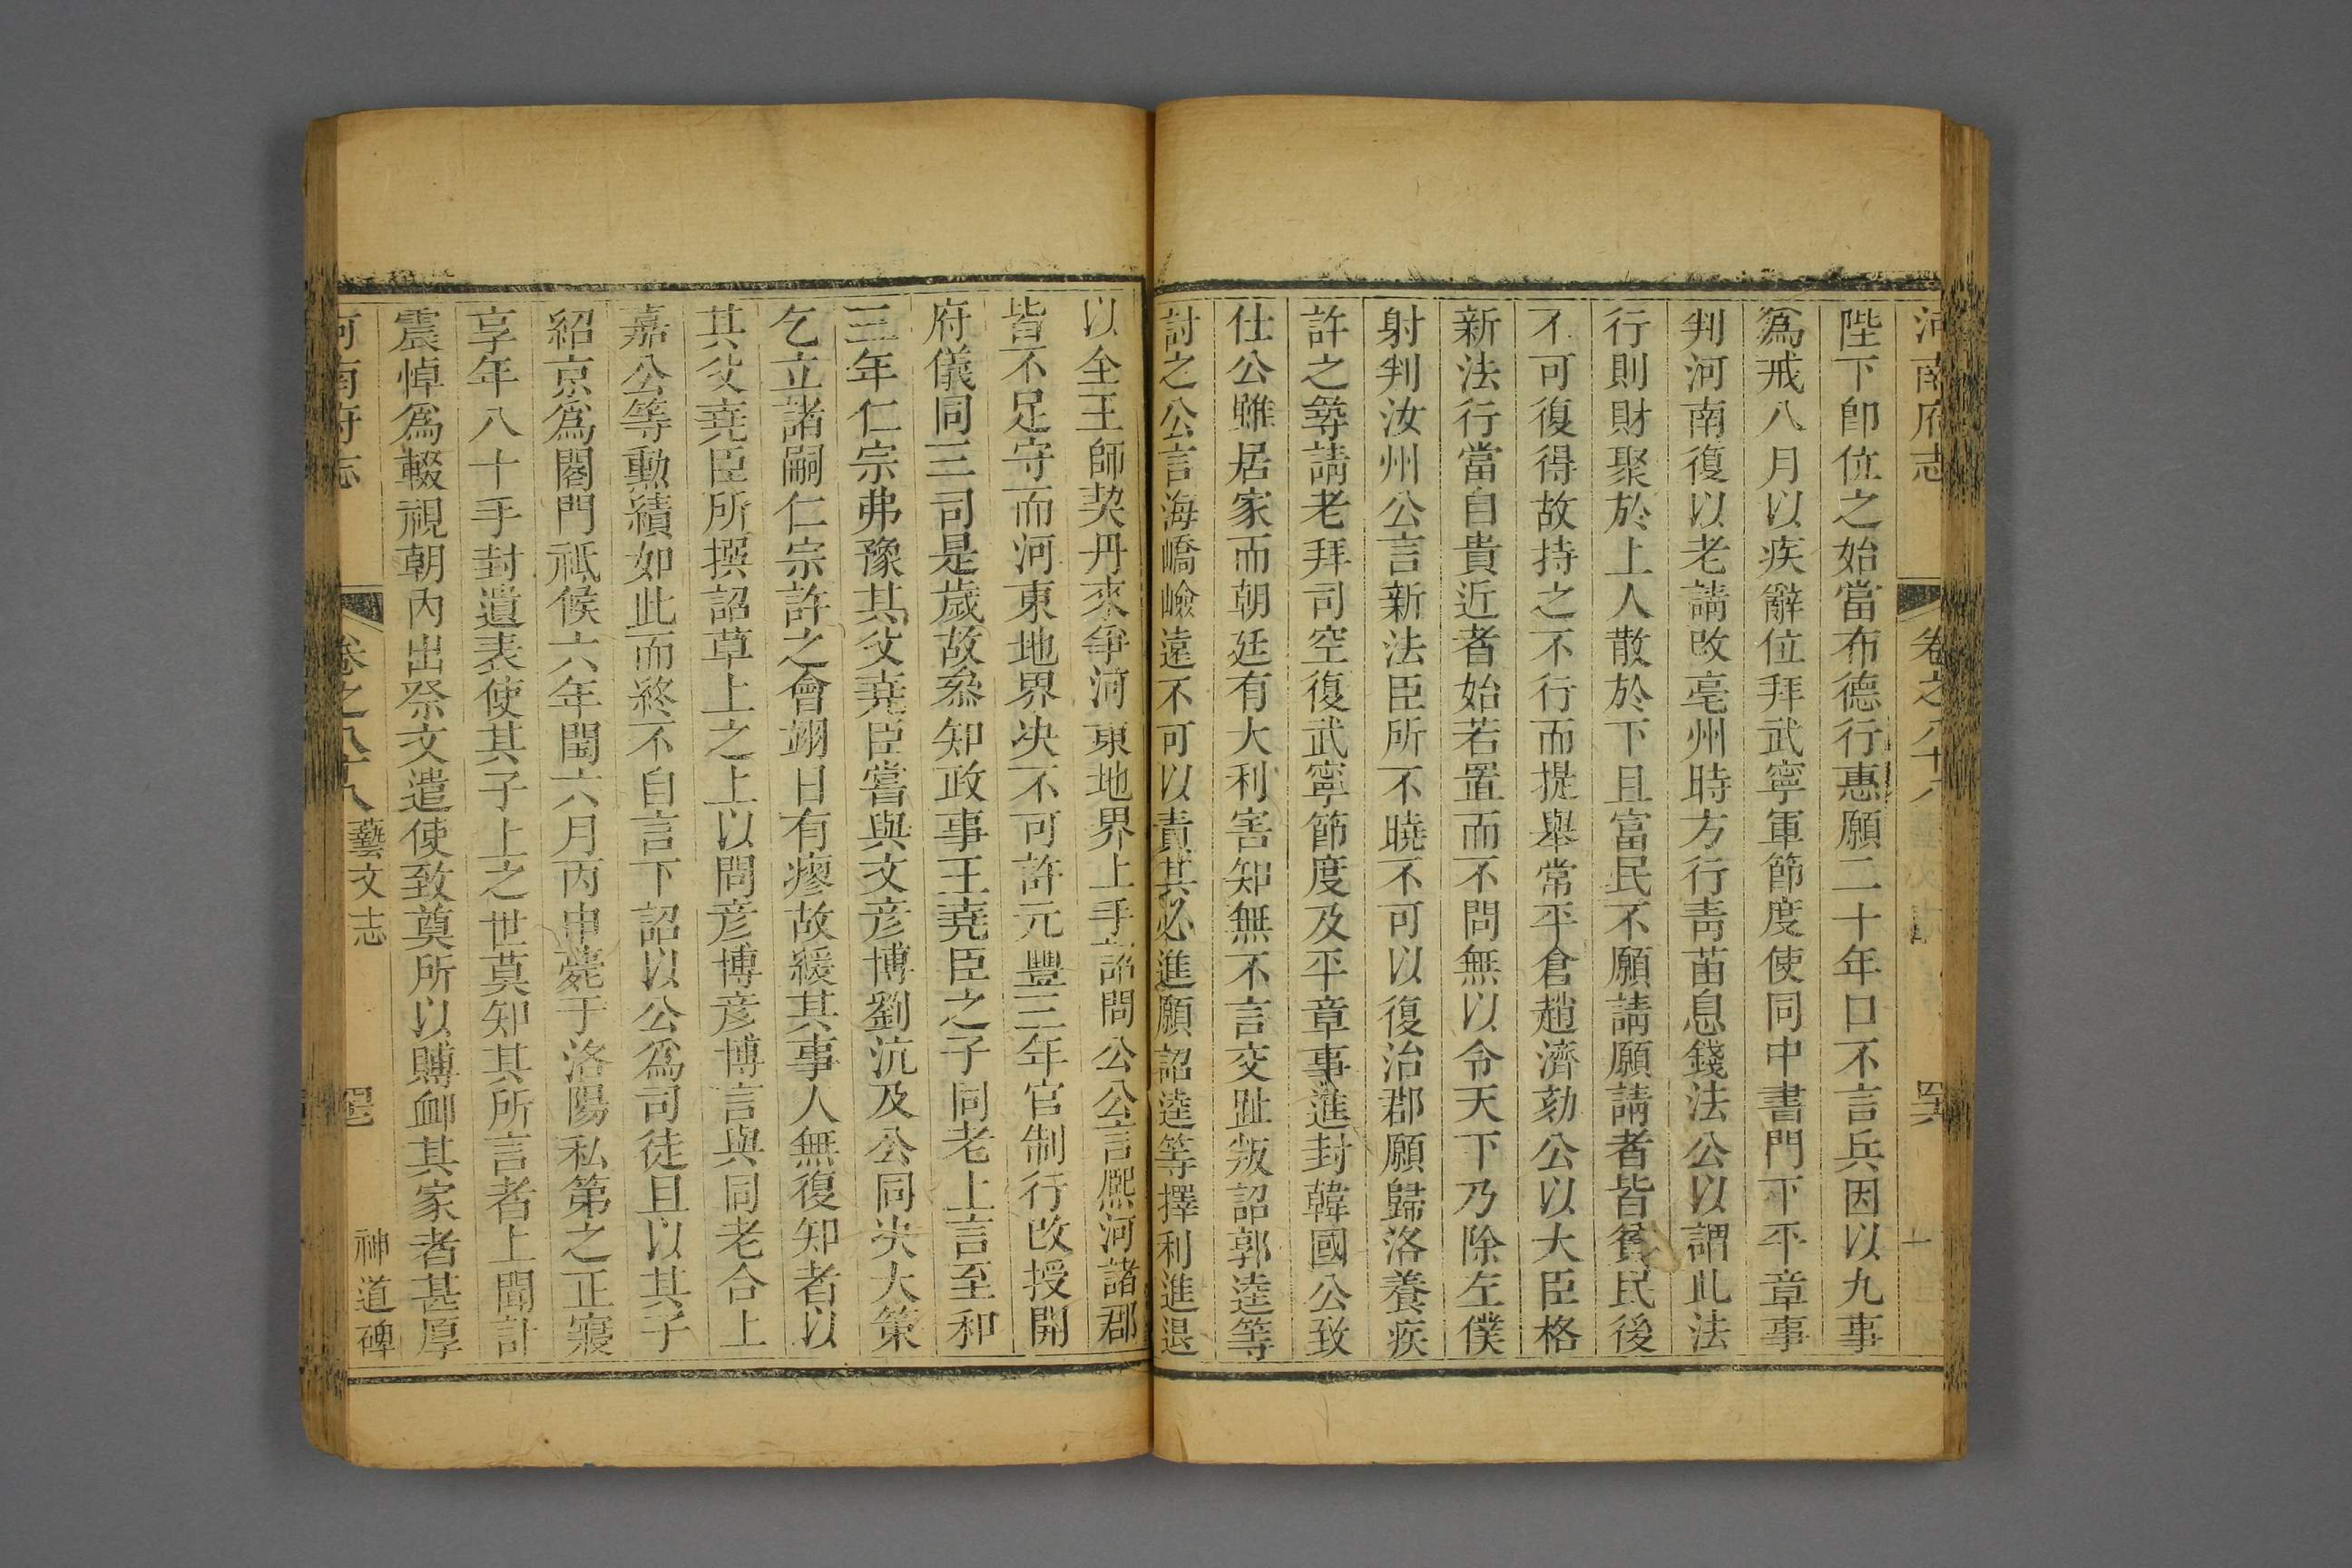 河南府志 卷之八十八 四六
陛下卽位之始當布德行惠願二十年口不言兵因以九事
爲戒八月以疾辭位拜武寧軍節度使同中書門下平章事
判河南復以老請改亳州時方行青苗息錢法公以謂此法
行則財聚於上人散於下且富民不願請願請者皆貧民後
不可復得故持之不行而提舉常平倉趙濟劾公以大臣格
新法行當自貴近者始若置而不問無以令天下乃除左僕
射判汝州公言新法臣所不曉不可以復治郡願歸洛養疾
許之尋請老拜司空復武寧節度及平章事進封韓國公致
仕公雖居家而朝廷有大利害知無不言交趾叛詔郭逵等
討之公言海嶠嶮遠不可以責其必進願詔逵等擇利進退
以全王師契丹來爭河東地界上手詔問公公言熙河諸郡
皆不足守而河東地界决不可許元豐三年官制行改授開
府儀同三司是歲故叅知政事王堯臣之子同老上言至和
三年仁宗弗豫其父堯臣嘗與文彥博劉沆及公同决大策
乞立諸嗣仁宗許之會翊日有瘳故緩其事人無復知者以
其父堯臣所撰詔草上之上以問彥博彥博言與同老合上
嘉公等勳績如此而終不自言下詔以公爲司徒且以其子
紹京爲閤門祗候六年閏六月丙申薨于洛陽私第之正寢
享年八十手封遺表使其子上之世莫知其所言者上聞訃
震悼爲輟視朝內出祭文遣使致奠所以賻卹其家者甚厚
河南府志 卷之八十八 藝文志 神道碑